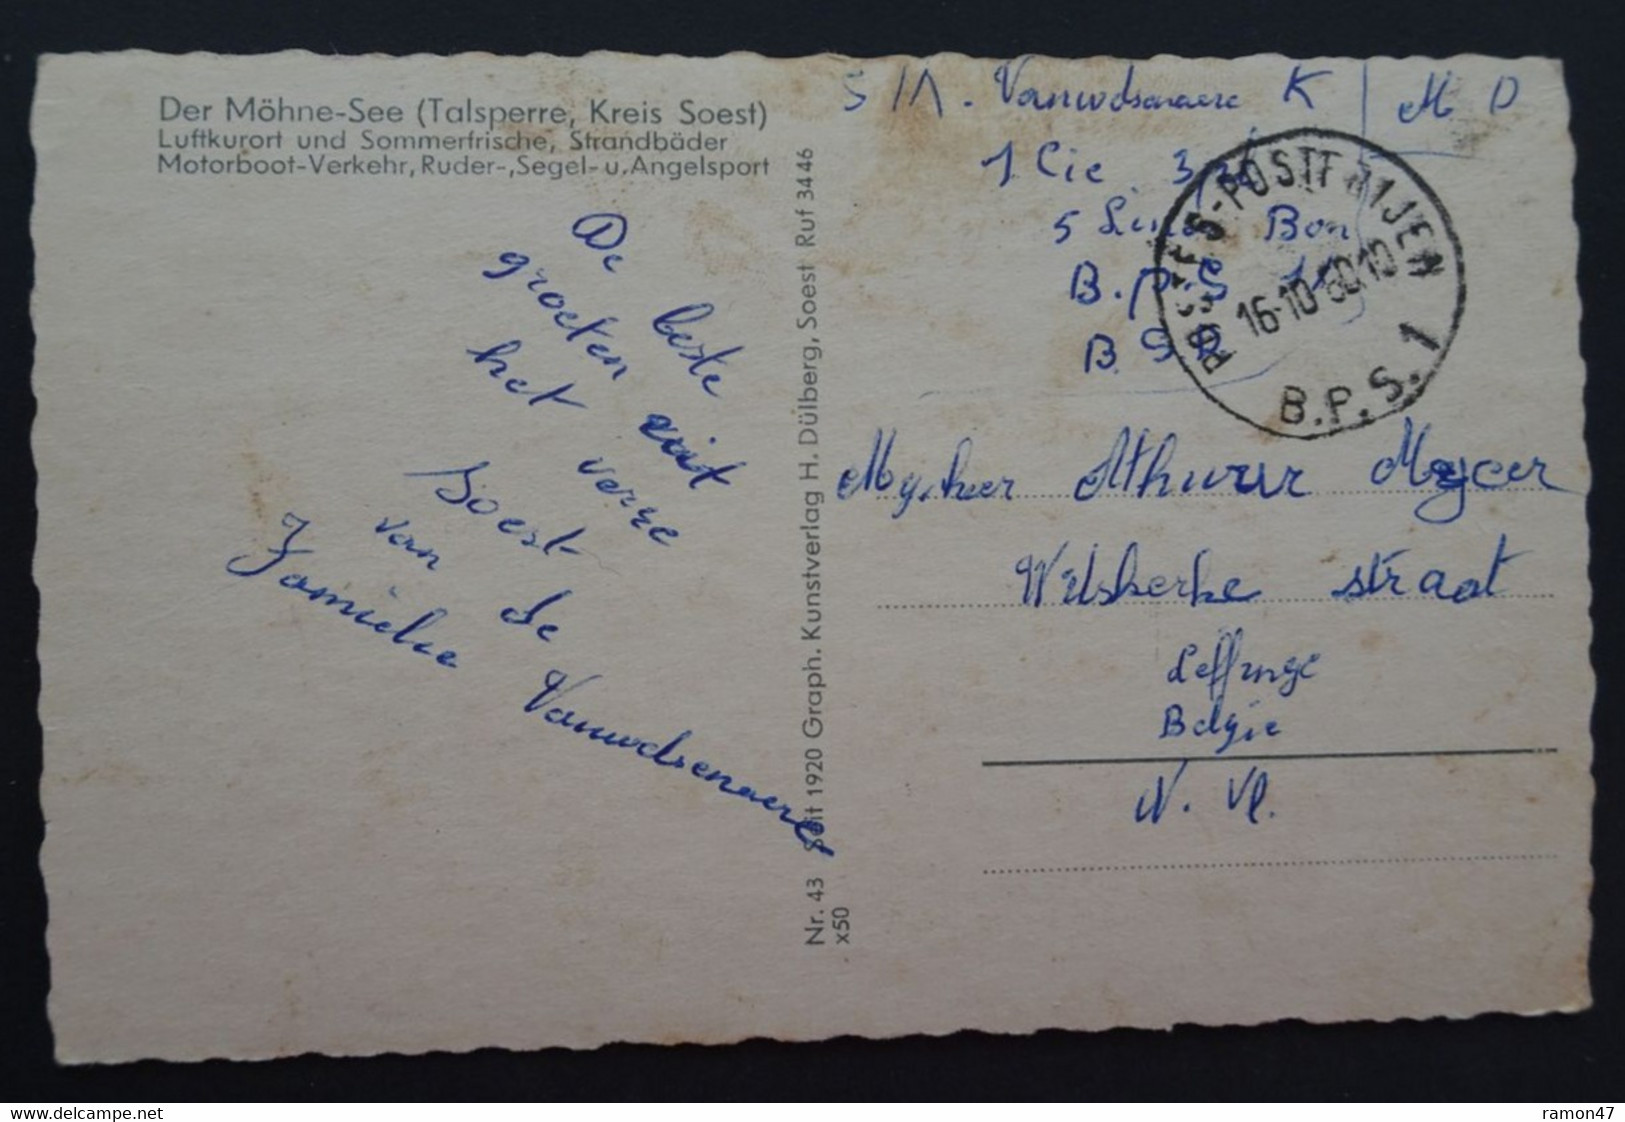 Der Möhne-See (Talsperre, Kreis Soest)
Luftkurort und Sommerfrische, Strandbäder
Motorboot-Verkehr, Ruder-, Segel- u. Angelsport
De beste
groeten uit
het verre
Soest
van de
Familie Vanwelsenaere
Nr. 43 Seit 1920 Graph. Kunstverlag H. Dülberg, Soest Ruf 3446
x50
Vanwelsenaere K
M D
1 Cie
5 Bon
B.P.S
POSTES-POSTERIJEN
16-10-60 10
B.P.S. 1
Mijnheer Athuur Meyer
Wilskerke straat
Leffinge
Belgie
W. Vl.
ramon47
delcampe.net